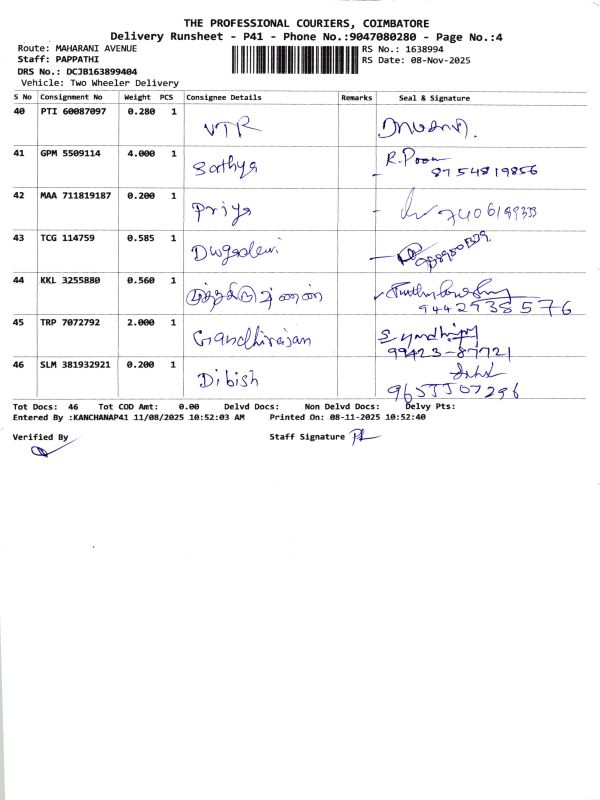 THE PROFESSIONAL COURIERS, COIMBATORE
Delivery Runsheet - P41 - Phone No.:9047080280 - Page No.:4
Route: MAHARANI AVENUE RS No.: 1638994
Staff: PAPPATHI RS Date: 08-Nov-2025
DRS No.: DCJB163899404
Vehicle: Two Wheeler Delivery
S No Consignment No Weight PCS Consignee Details Remarks Seal & Signature
40 PTI 60087097 0.280 1 VTR
41 GPM 5509114 4.000 1 Sathya R.Poon
8754819856
42 MAA 711819187 0.200 1 Priya
43 TCG 114759 0.585 1 Durgadevi
44 KKL 3255880 0.560 1
9442938576
45 TRP 7072792 2.000 1 Gandhirajan
99423-87721
46 SLM 381932921 0.200 1 Dibish
9655507296
Tot Docs: 46 Tot COD Amt: 0.00 Delvd Docs: Non Delvd Docs: Delvy Pts:
Entered By :KANCHANAP41 11/08/2025 10:52:03 AM Printed On: 08-11-2025 10:52:40
Verified By Staff Signature